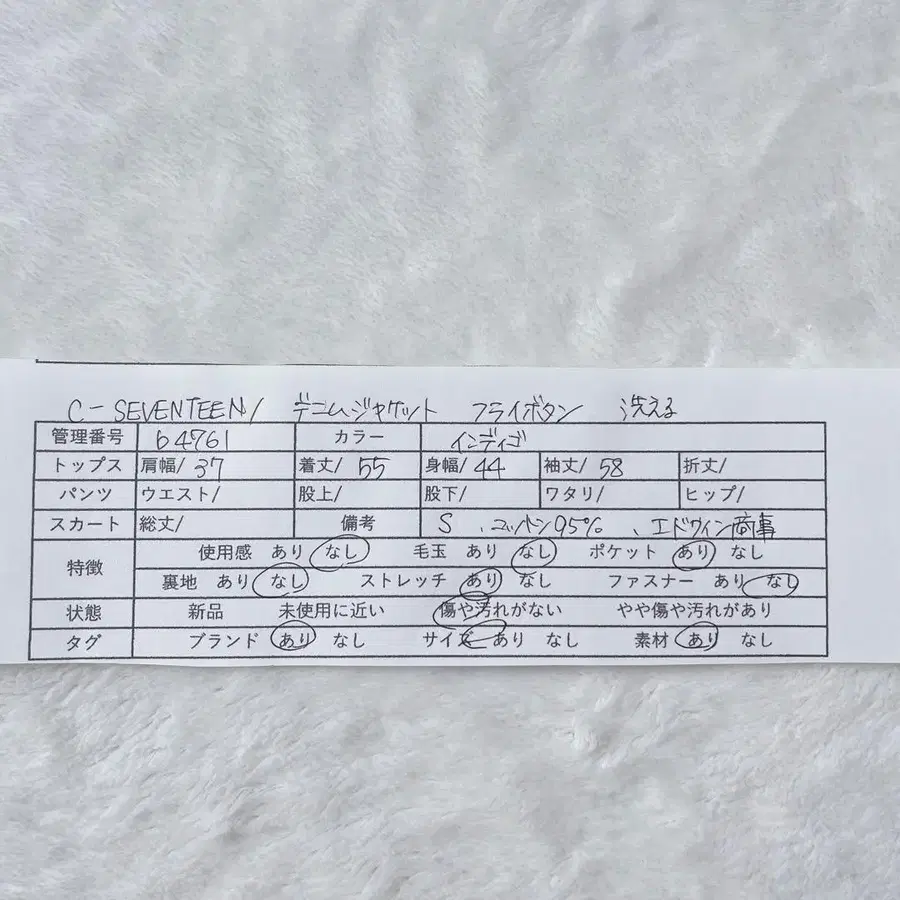 C-SEVENTEEN/ デニムジャケット フライボタン 洗える
管理番号 b4761 カラー インディゴ
トップス 肩幅/ 37 着丈/ 55 身幅/ 44 袖丈/ 58 折丈/
パンツ ウエスト/ 股上/ 股下/ ワタリ/ ヒップ/
スカート 総丈/ 備考 S 、コットン95% 、エドウィン商事
特徴 使用感 あり なし 毛玉 あり なし ポケット あり なし
裏地 あり なし ストレッチ あり なし ファスナー あり なし
状態 新品 未使用に近い 傷や汚れがない やや傷や汚れがあり
タグ ブランド あり なし サイズ あり なし 素材 あり なし